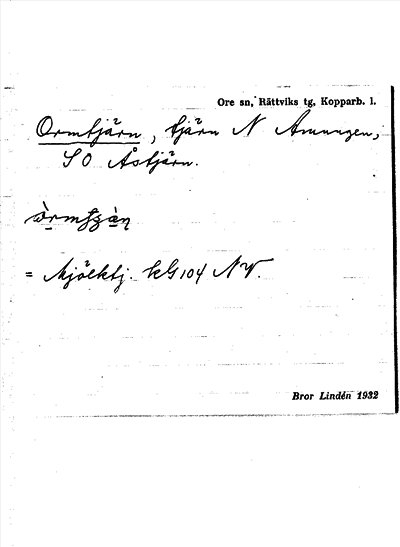 Ore sn, Rättviks tg, Kopparb. l.
Ormtjärn, tjärn N Amungen,
SO Åstjärn.
= Mjölktj. kG 104 NV.
Bror Lindén 1932